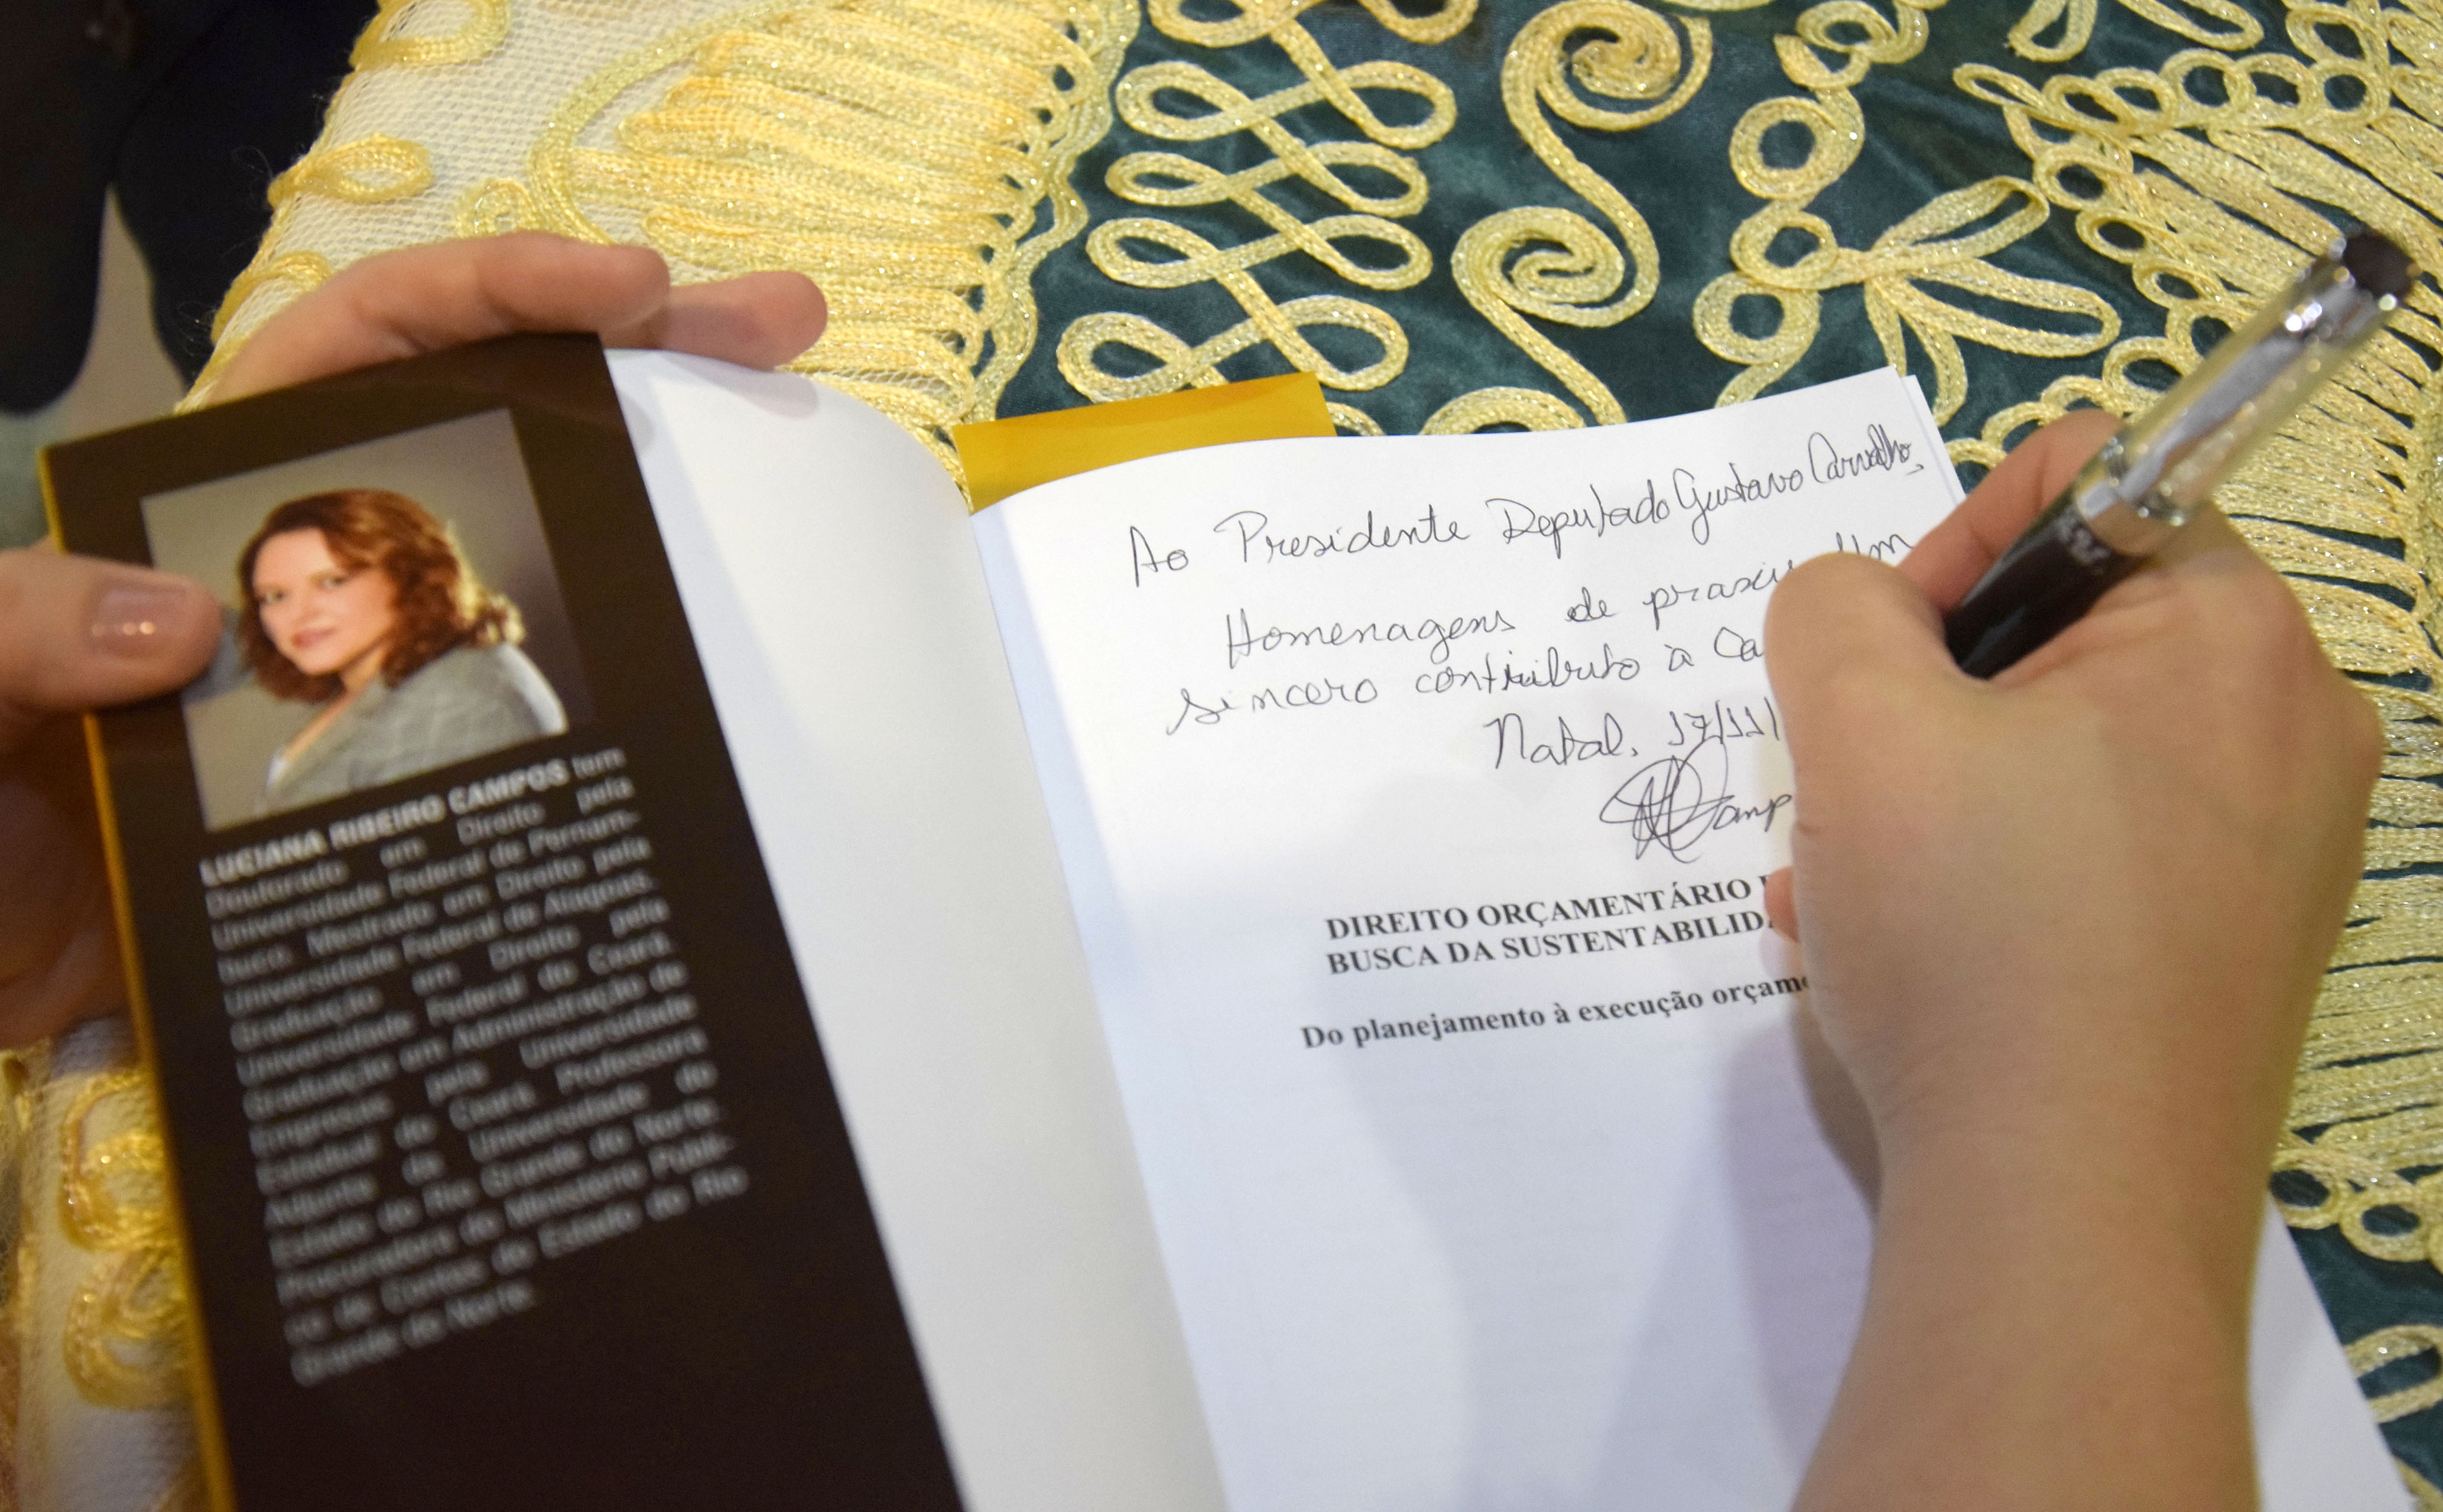 LUCIANA RIBEIRO CAMPOS tem
Doutorado em Direito pela
Universidade Federal de Pernam-
buco. Mestrado em Direito pela
Universidade Federal de Alagoas.
Graduação em Direito pela
Universidade Federal do Ceará.
Graduação em Administração de
Empresas pela Universidade
Estadual do Ceará. Professora
Adjunta da Universidade do
Estado do Rio Grande do Norte.
Procuradora do Ministério Públi-
co de Contas do Estado do Rio
Grande do Norte.
Ao Presidente Deputado Gustavo Carvalho,
Homenagens de Um
sincero contributo à Ca
Natal, 17/11/
Camp
DIREITO ORÇAMENTÁRIO
BUSCA DA SUSTENTABILIDA
Do planejamento à execução orçame